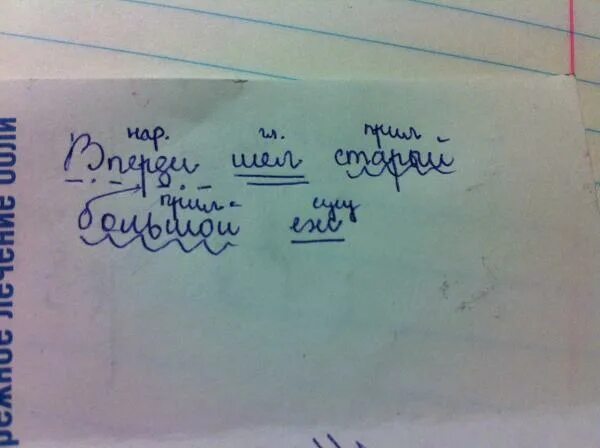 нар. гл. прил
Вперди шёл старый
прил. сущ
большой ёж
режное лечение боли